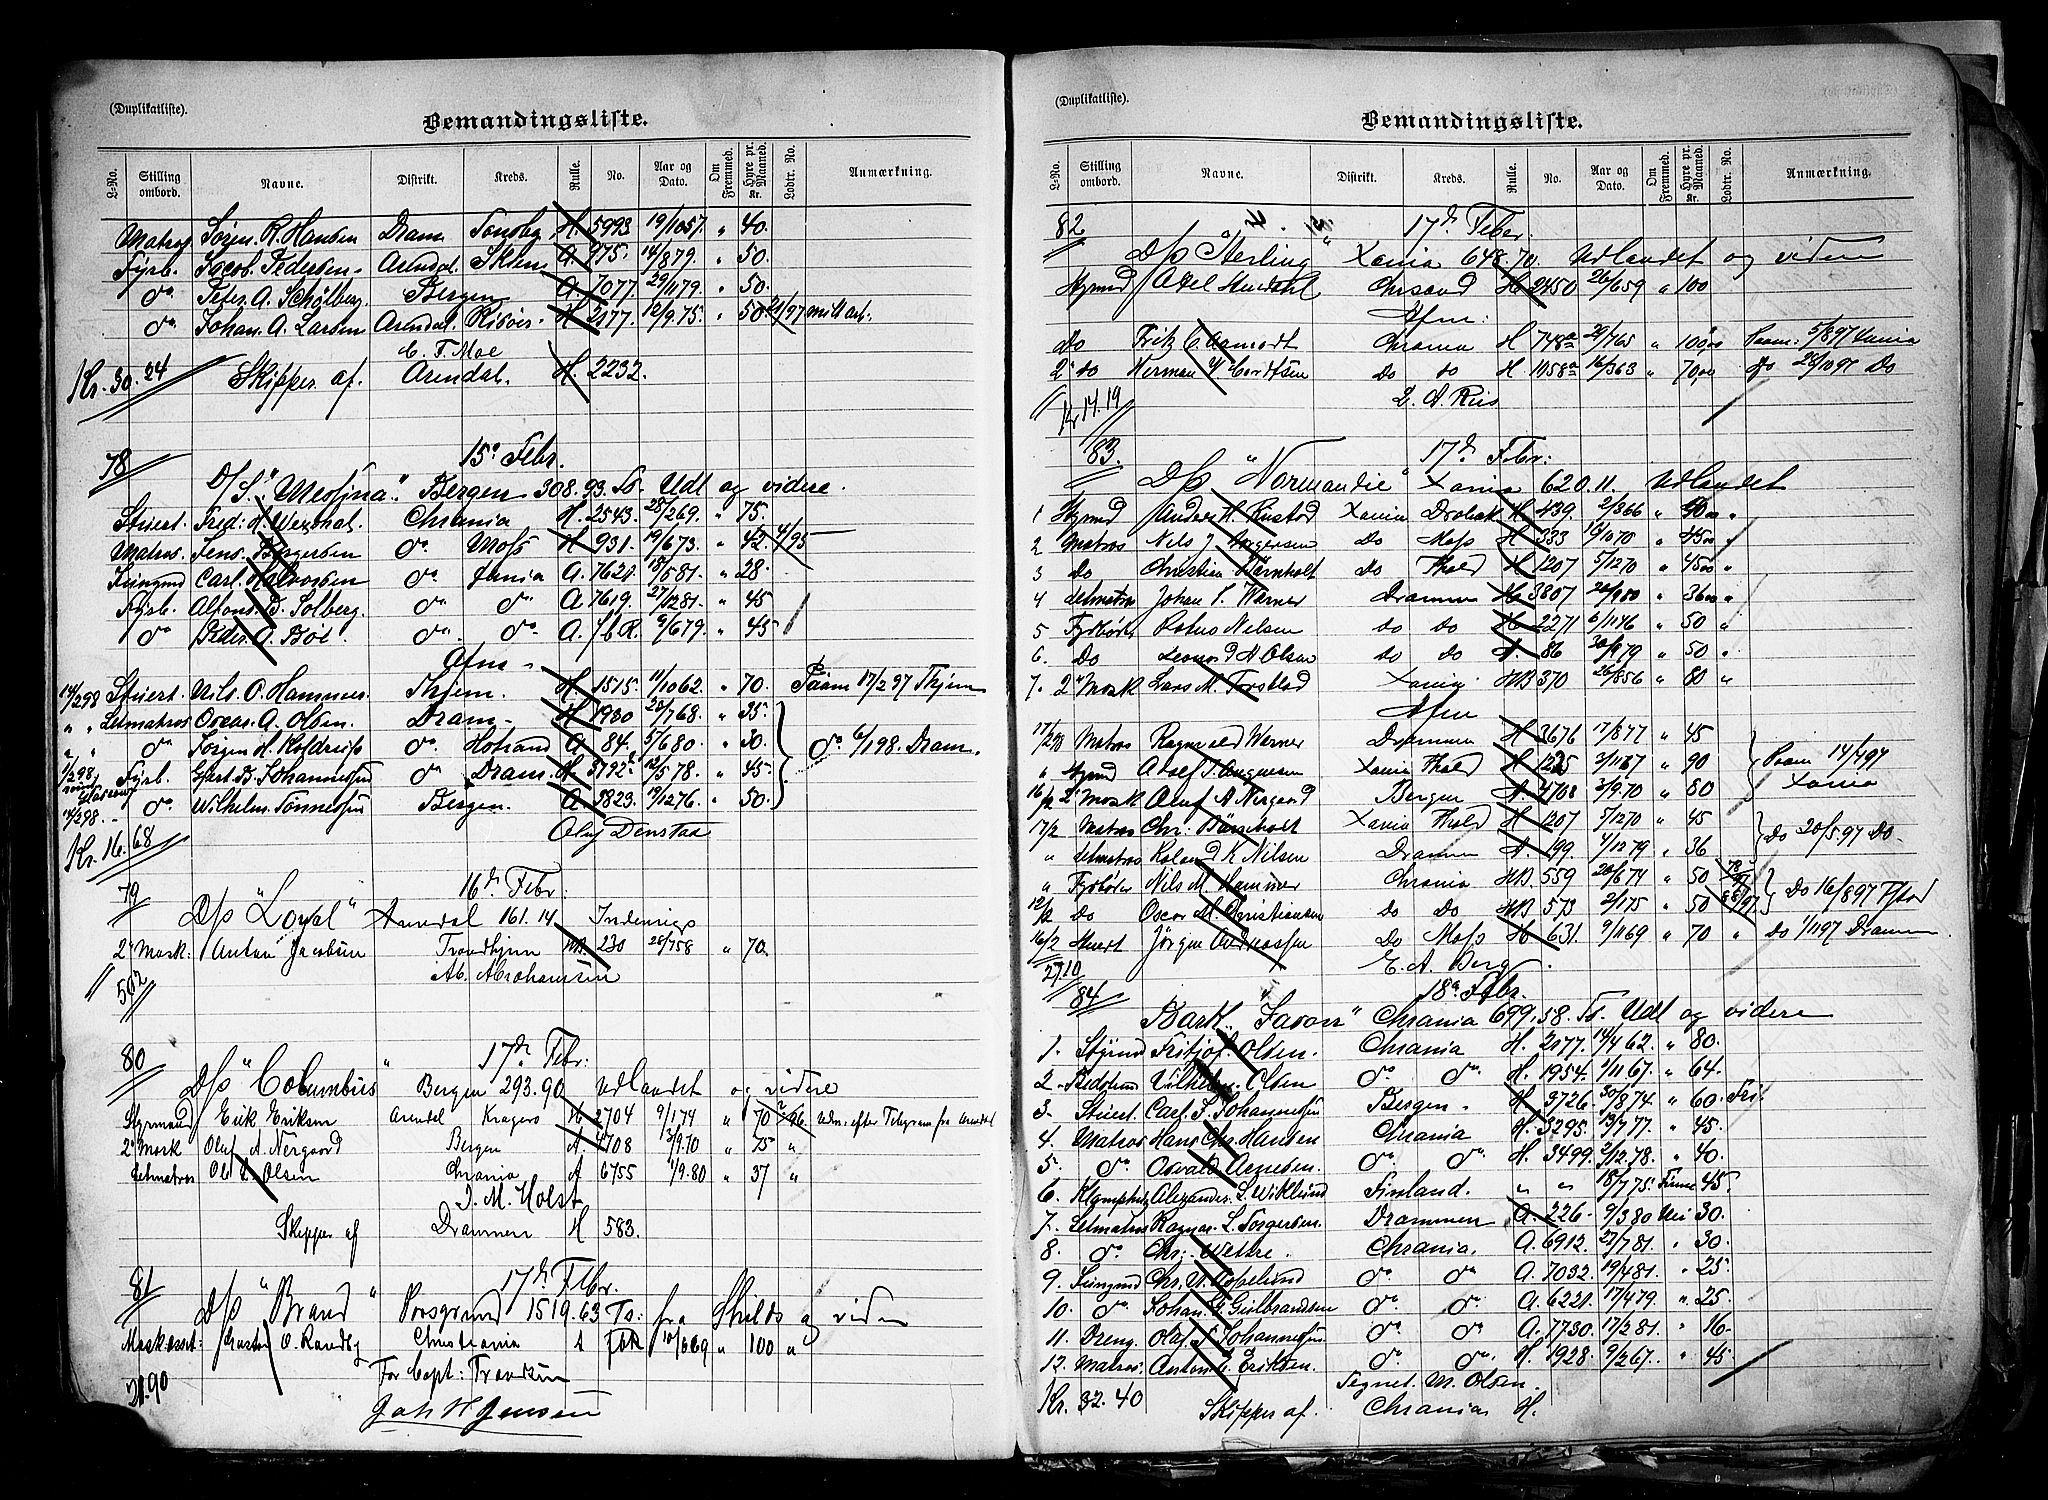 (Duplikatliste).
Bemandingsliste.
L-No. Stilling ombord. Navne. Distrikt. Kreds. Rulle. No. Aar og Dato. Om Fremmed. Hyre pr. Maaned. Kr. Lodtr. No. Anmærkning.
Matros Søren R. Hansen Dram Tønsbg H. 5993 19/10 57 " 40.
Fyrb. Jacob Pedersen Arendal Skien A. 775 14/8 79. " 50.
do Peter A. Schølberg. Bergen A. 7077 29/11 79 " 50.
do Johan A. Larsen Arendal. Risøer H. 2177. 12/9 75. " 50
C. F. Moe
Kr. 30.24 Skipper af. Arendal. H. 2232.
78 15de Febr.
D/S. "Messina" Bergen 308.93. To. Udl og videre.
Stuert. Fred: H. Chrania H. 2543. 28/2 69. " 75.
Matros. Jens Børgersen do. Moss H. 931. 19/6 73. " 42. 4/95
Jungmd Carl. Halvorsen do Xania A. 7621. 18/5 81. " 28.
Fyrb. Alfons. B. Solberg. do do A. 7619. 27/12 81. " 45
do Peder A. Bøe. do. do. A. fbR. 9/6 79. " 45
Afm
14/2 98 Stuert. Nils. O. Hammer. Thjem. H. 1515. 11/10 62. " 70. Paam 17/2 97 Thjem
" " Letmatros Oscar. A. Olsen. Dram. H. 1930 20/7 68. " 35.
" " do Jørgen H. do. A. 84. 5/6 80. " 30. do 6/1 98. Dram.
Fyrb. B. Johannessen do Dram. H. 3792. 12/5 78. " 45.
14/2 98. do. Wilhelm Tønnessen Bergen. A. 9823. 19/12 76. " 50.
Kr. 16.68 Oluf Denstad
79 16de Febr.
D/S "Loyal" Arendal 161.14 Indenrigs
2 Mask: Anton Jacobsen Trondhjem MB. 230 28/7 58 " 70.
Ab. Abrahamsen
502
80 17de Febr:
D/S "Columbus" Bergen 293.90 Udlandet og videre
Styrmand Erik Eriksen Arendal Kragerø H 2704 9/1 74 " 70 Udm. efter Telegram fra Arendal
2 Mask Oluf A. Nergaard Bergen A. 4708 3/9.70 " 75 "
Letmatros Ole L. Olsen Chrania A 6755 1/9.80 " 37 "
J. M. Holst
Skipper af Drammen H 583.
81 17de Febr.
D/S "Brand" Porsgrund 1519.63 Ts: fra Shields og videre
Maskasst: O. Randby Christiania A fbR 10/6 69 " 100 "
For Capt: Trondsen
21.90 Joh H Jensen
(Duplikatliste).
Bemandingsliste.
L-No. Stilling ombord. Navne. Distrikt. Kreds. Rulle. No. Aar og Dato. Om Fremmed. Hyre pr. Maaned. Kr. Lodtr. No. Anmærkning.
82 17de Febr.
D/S "Sterling" Xania 648.70. Udlandet og videre
Styrmd Axel Chrsand H 2450 26/6 59 " 100
Afm:
Do Fritz C. Aamodt Chrania H 748a 29/7 65 " 100,00 Paam: 5/8 97 Xania
2 do Herman Cordtsen do do H 1058a 16/3 63 " 70,00 do 28/10 97 Do
Kr 14.19 L. A. Riis
83. 17de Febr:
D/S "Normandie" Xania 620.11. Udlandet
1 Styrmd Anders H. Xania Drøbak H 439. 2/3 66 " 90 00 "
2 Matros Nils J Jørgensen Do Moss H 333 19/10 70 " 45 00 "
3 Do Christian Bärnholt Do Thold H 1207 5/12 70 " 45 00 "
4 Letmatros Johan Warner Drammen H 3807 26/9 80 " 36 00 "
5 Fyrbøder Nilsen do do H 2271 6/11 46 " 50 "
6. Do Leonard A Olsen do do A. 86 30/9 79 " 50 "
7. 2 Mask Lars M. Torsblad Xania MB 370 26/8 56 " 80 "
Afm
17/2 98 Matros Ragnvald Werner Drammen H 3676 17/8 77 " 45
" Styrmd Adolf T. Xania Thold H 1225 2/11 67 " 90 Paam 14/4 97
16/2 2 Mask Oluf A Nergaard Bergen A. 4708 3/9 70 " 80 Xania
17/2 Matros Chr. Bärnholt Xania Thold H 1207 5/12 70 " 45
" Letmatros Roland K Nilsen Drammen A. 199. 4/12 79 " 36 Do 20/5.97 Do
" Fyrbøder Nils M. Hammer Chrania MB. 559 20/6 74 " 50 Do 16/8 97
12/2 Do Oscar M. Christiansen Do Do MB 573 2/1 75 " 50
16/2 Stuert Jørgen Andreassen Do Moss H 631 9/11 69 " 70 " Do 1/11 97 Drammen
27.10 E. A. Berg
84 18de Febr.
Bark "Favour" Chrania 699.58. To. Udl og videre
1. Styrmd Fritjof. Olsen. Chrania H. 2177. 14/4 62. " 80.
2. Bedstmd Vilhelm. Olsen do do. H. 1954. 1/11 67. " 64.
3. Stuert. Carl. F. Johannessen Bergen H. 3726. 30/8 74. " 60.
4. Matros Hans Chr. Hansen Chrania H. 3295. 13/7 77. " 45.
5. do. Osvald Arnesen. do. do H. 3499. 2/12 78. " 40.
6. Alexander L. Wiklund Finland. " " 18/7 75. Finne 45.
7. Letmatros Ragnar. L. Torgersen. Drammen A. 226. 9/3 80 Nei 30.
8. do. Chr. Chrania. A. 6912. 27/7 81. " 30.
9. Jungmd Chr. A. do do A. 7032. 19/4 81. " 25.
10. do. Johan Gulbrandsen do. do. A. 6221. 17/4 79. " 25.
11. Dreng. Olaf Johannessen do. do. A. 7730. 17/2 81. " 16.
12. Matros. Anton Eriksen. do. do. H. 1928. 9/2 67. " 45.
Tegnet. M. Olsen.
Kr. 32.40 Skipper af. Chrania H.